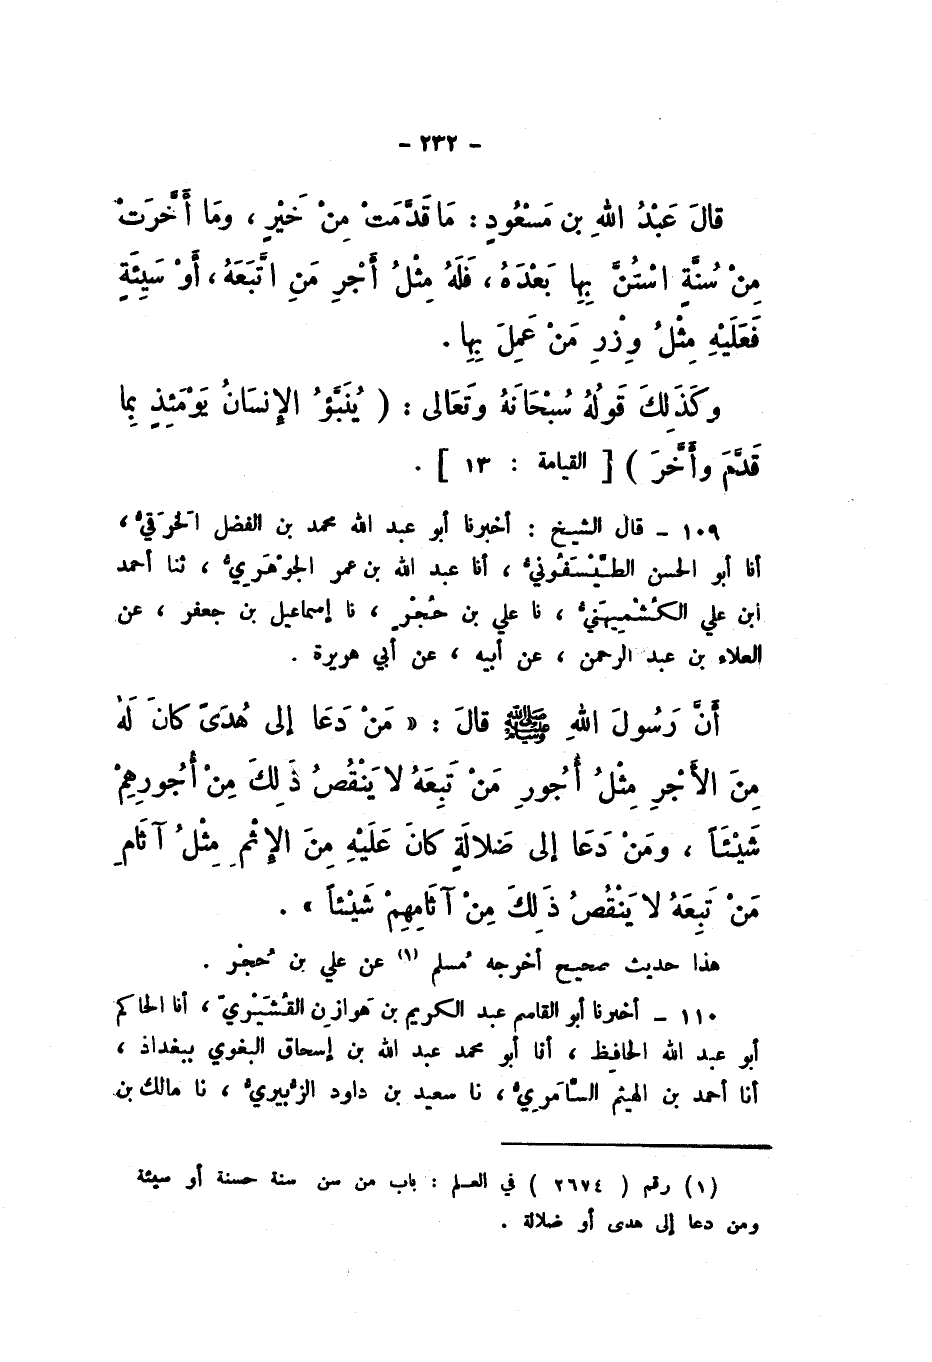 - ٢٣٢ -
قالَ عَبْدُ اللهِ بن مَسْعُودٍ : مَا قَدَّمَتْ مِنْ خَيْرٍ ، ومَا أَخَّرَتْ
مِنْ سُنَّةٍ اسْتُنَّ بِها بَعْدَهُ ، فَلَهُ مِثْلُ أَجْرِ مَنِ اتَّبَعَهُ ، أَوْ سَيِئَةٍ
فَعَلَيْهِ مِثْلُ وِزْرِ مَنْ عَمِلَ بِها .
وكَذَلِكَ قَولُهُ سُبْحَانَهُ وتَعَالى : ( يُنَبَّؤُ الإِنسَانُ يَوْمَئِذٍ بِما
قَدَّمَ وأَخَّرَ ) [ القيامة : ١٣ ] .
١٠٩ – قال الشيخ : أخبرنا أبو عبد الله محمد بن الفضل الخَرَقيُّ ،
أنا أبو الحسن الطَّيْسَفُونيُّ ، أنا عبد الله بن عمر الجوْهَريُّ ، ثنا أحمد
ابن علي الكُشْمِيهَنيُّ ، نا علي بن حُجْرٍ ، نا إسماعيل بن جعفر ، عن
العلاء بن عبد الرحمن ، عن أبيه ، عن أبي هريرة .
أَنَّ رَسُولَ اللهِ ﷺ قالَ : « مَنْ دَعَا إلى هُدَىً كانَ لَهُ
مِنَ الأَجْرِ مِثْلُ أُجُورِ مَنْ تَبِعَهُ لا يَنْقُصُ ذَلِكَ مِنْ أُجُورِهِمْ
شَيْئَاً ، ومَنْ دَعَا إلى ضَلالَةٍ كانَ عَلَيْهِ مِنَ الإِثْمِ مِثْلُ آثَامِ
مَنْ تَبِعَهُ لا يَنْقُصُ ذَلِكَ مِنْ آثَامِهِمْ شَيْئاً » .
هذا حديث صحيح أخرجه مُسلم (١) عن علي بن حُجْر .
١١٠ – أخبرنا أبو القاسم عبد الكريم بن هَوازِن القُشَيْريّ ، أنا الحاكم
أبو عبد الله الحافِظ ، أنا أبو محمد عبد الله بن إسحاق البغوي ببغداذ ،
أنا أحمد بن الهيثم السَّامَرِيُّ ، نا سعيد بن داود الزُّبيريُّ ، نا مالك بن
(١) رقم ( ٢٦٧٤ ) في العلم : باب من سن سنة حسنة أو سيئة
ومن دعا إلى هدى أو ضلالة .